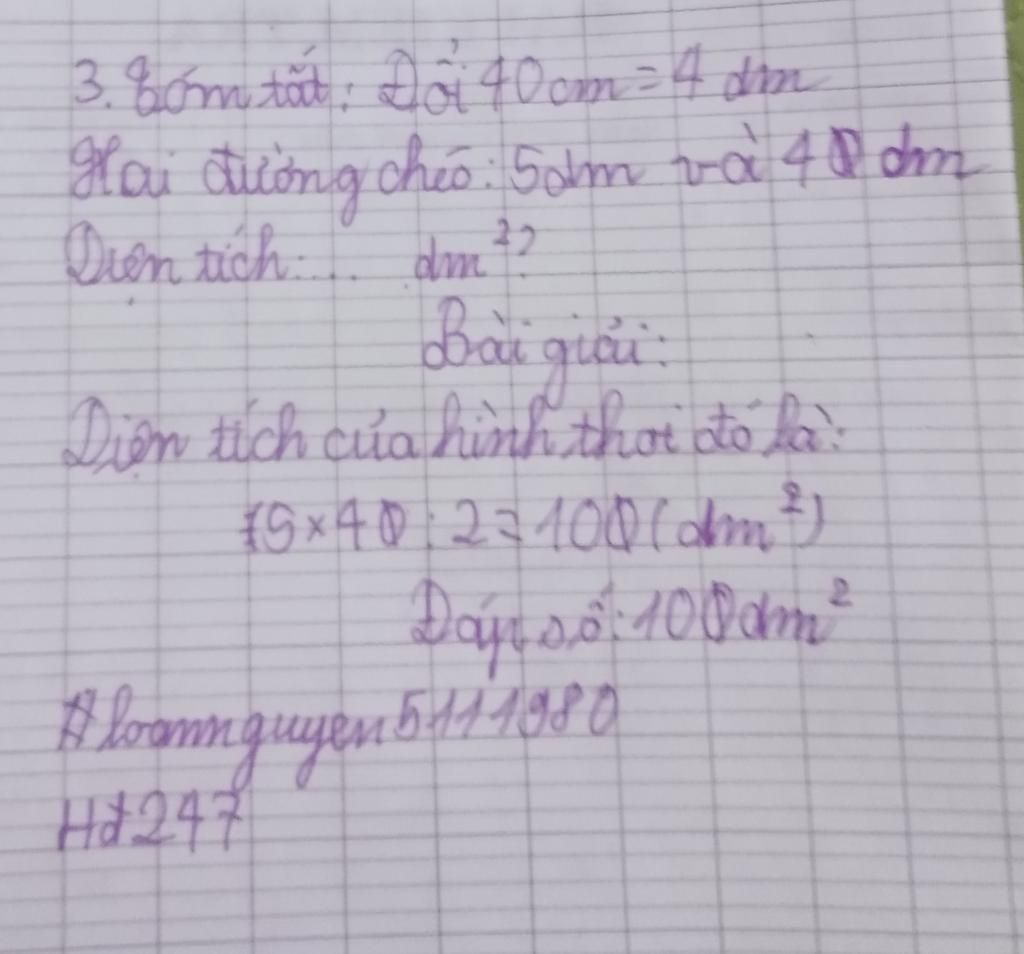 3. Tóm tắt: Đổi 40cm = 4 dm
Hai đường chéo: 5dm và 4 dm
Diện tích: ... dm²?
Bài giải:
Diện tích của hình thoi đó là:
5 × 4 : 2 = 10 (dm²)
Đáp số: 10 dm²
#loannguyen5111980
Hd247